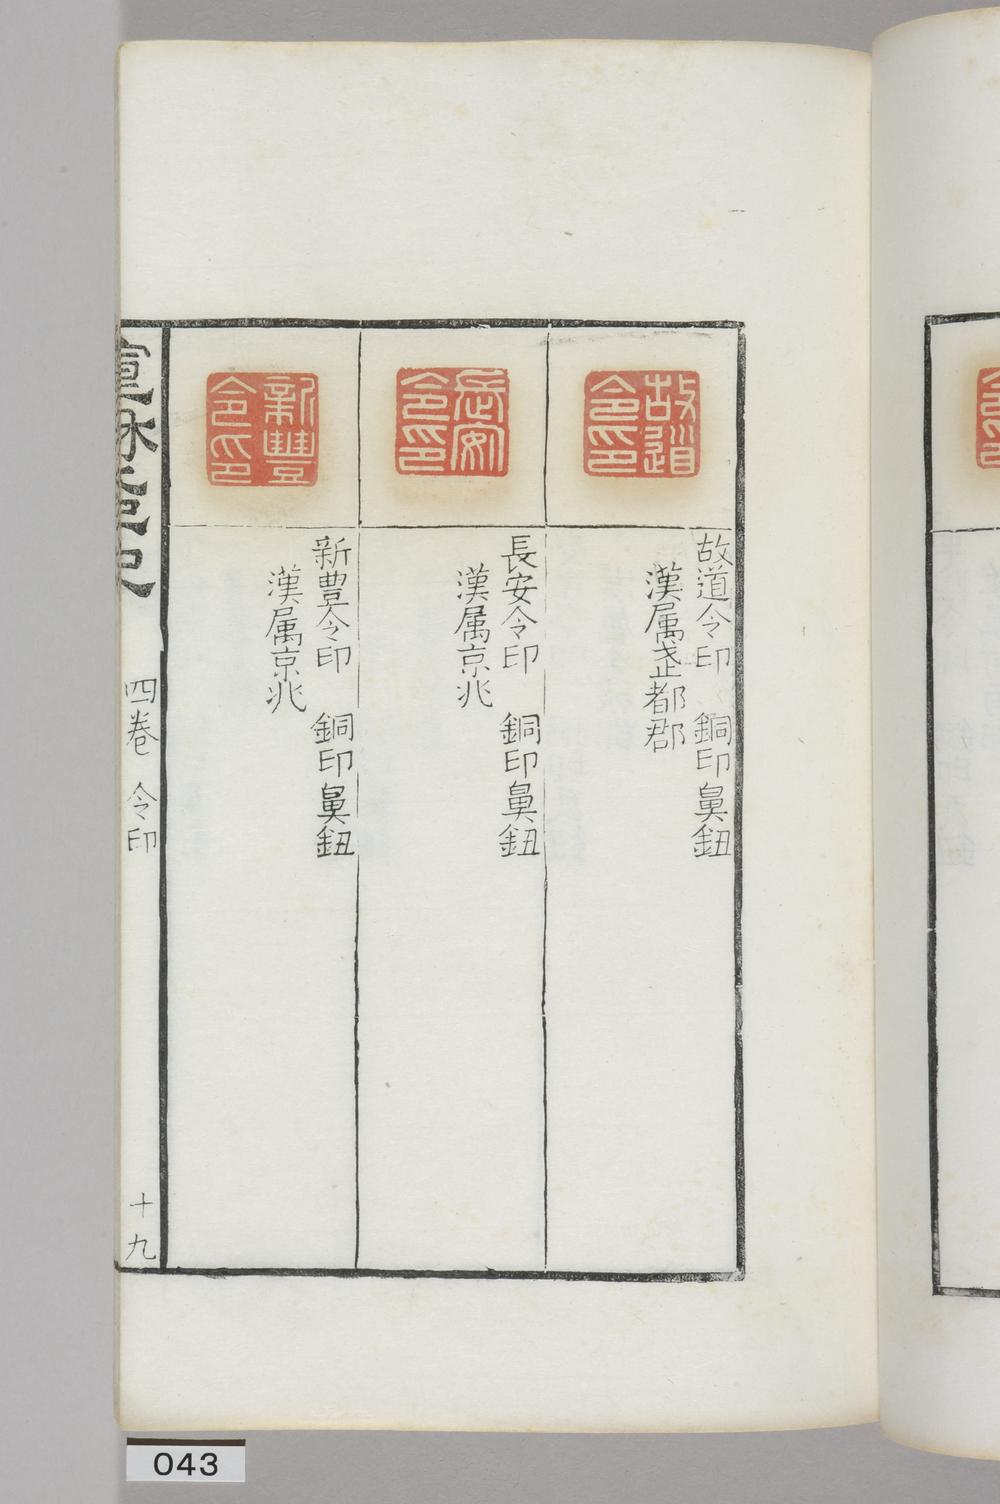 故道令印
故道令印 銅印鼻鈕
漢属武都郡
長安令印
長安令印 銅印鼻鈕
漢属京兆
新豐令印
新豊令印 銅印鼻鈕
漢属京兆
四卷 令印
十九
043